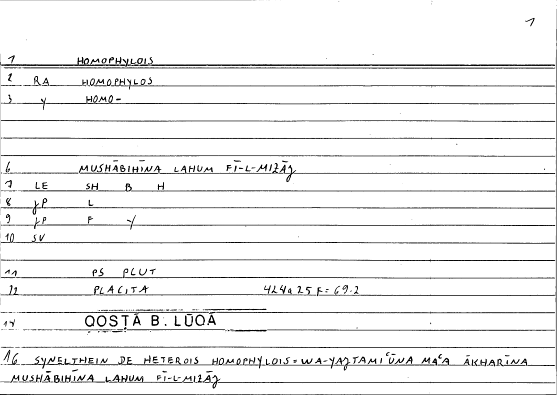 1
1 HOMOPHYLOIS
2 RA HOMOPHYLOS
3 y HOMO-
6 MUSHĀBIHĪNA LAHUM FĪ-L-MIZĀJ
7 LE SH B H
8 JP L
9 JP F Y
10 SV
11 PS PLUT
12 PLACITA 424a25F=69.2
14 QOSṬĀ B. LŪQĀ
16 SYNELTHEIN DE HETEROIS HOMOPHYLOIS=WA-YAJTAMIᶜŪNA MAᶜA ĀKHARĪNA
MUSHĀBIHĪNA LAHUM FĪ-L-MIZĀJ